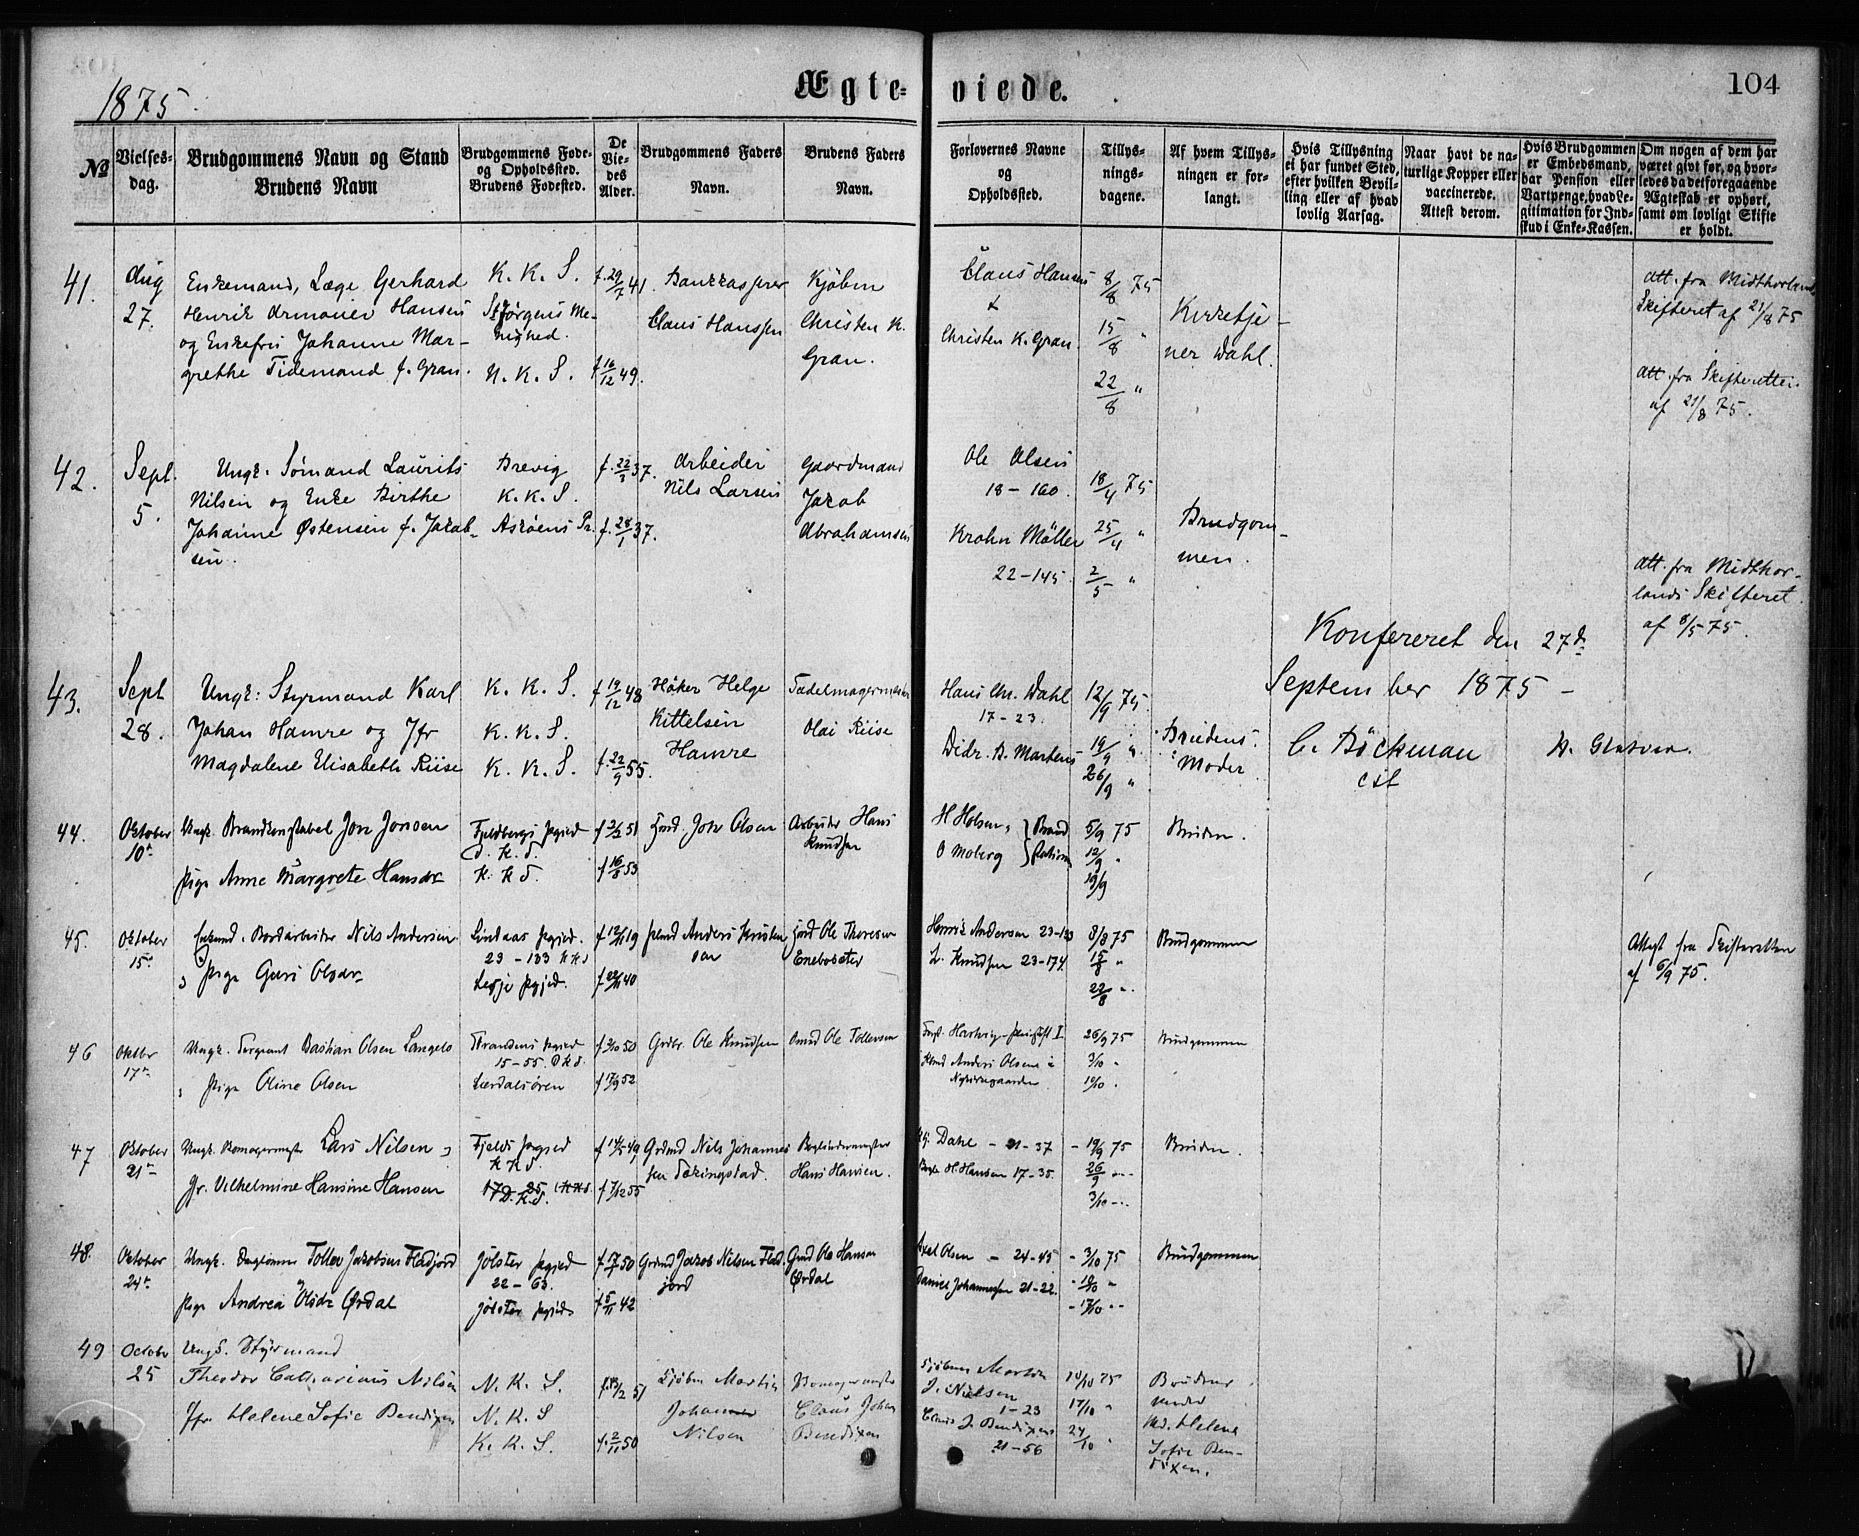 1875.
Ægte-
viede.
104
No
Vielses-
dag.
Brudgommens Navn og Stand
Brudens Navn
Brudgommens Føde-
og Opholdssted.
Brudens Fødested.
De
Vie-
des
Alder.
Brudgommens Faders
Navn.
Brudens Faders
Navn.
Forlovernes Navne
og
Opholdssted.
Tillys-
nings-
dagene.
Af hvem Tillys-
ningen er for-
langt.
Hvis Tillysning
ei har fundet Sted,
efter hvilken Bevil-
ling eller af hvad
lovlig Aarsag.
Naar havt de na-
turlige Kopper eller
vaccinerede.
Attest derom.
Hvis Brudgommen
er Embedsmand,
har Pension eller
Vartpenge, hvad Le-
gitimation for Ind-
skud i Enke-Kassen.
Om nogen af dem har
været gift før, og hvor-
ledes da det foregaaende
Ægteskab er ophørt,
samt om lovligt Skifte
er holdt.
41.
Aug
27.
Enkemand, Læge Gerhard
Henrik Armauer Hansen
og Enkefru Johanne Mar-
grethe Tidemand f. Gran.
K. K. S.
St Jørgens Me-
nighed.
N. K. S.
f. 29/7 41.
f 16/12 49.
Bankkasserer
Claus Hanssen
Kjøbm
Christen K.
Gran.
Claus Hansen
&
Christen K. Gran.
8/8 75
15/8 "
22/8 "
Kirketje-
ner Dahl.
Att. fra Midthorlands
Skifteret af 21/8 75
Att. fra Skifteretten
af 21/8 75.
42.
Sept.
5.
Ungk. Sømand Laurits
Nilsen og Enke Birthe
Johanne Østensen f. Jakob-
sen.
Brevig
K. K. S.
Askøens Pr.
f. 28/1 37.
Arbeider
Nils Larsen
Gaardmand
Jakob
Abrahamsen
Ole Olsen
18-160.
Krohn Møller
22-145.
18/4 75
25/4 "
2/5 "
Brudgom-
men.
Att. fra Midthor-
lands Skifteret
af 8/5 75.
Konfereret den 27d.
September 1875 -
C. Böckman
cst
43.
Sept
28.
Ungk: Styrmand Karl
Johan Hamre og Jfr
Magdalene Elisabeth Riise
K. K. S.
K. K. S.
K. K. S.
f 19/12 48
f. 22/9 55.
Høker Helge
Kittelsen
Hamre
Sadelmagermester
Olai Riise
Hans Chr. Dahl
17-23.
Didr. B. Martens
12/9 75.
19/9 "
26/9 "
Brudens
Moder
44.
Oktober
10.
Ungk. Brandkonstabel Jon Jonsen
Pige Anne Margrete Hansdr
Fjeldbergs Pgjed
D. K. S.
K. K S.
f 16/8 53
Gmd. Jon Olsen
Arbeider Hans
Knudsen
H Holsen,
O Moberg
Brand
5/9 75
12/9 "
19/9
Bruden.
45.
Oktober
15.
Enkmd. Bordarbeider Nils Andersen
Pige Guri Olsdr
Lindaas Pgjed.
23 - 133 KKS
Lesje Pgjed.
f 12/11 19
f 22/11 40
Plmd Anders Kristen-
sen
Gmd Ole Thoresen
Enebosæter
Henrik Andersen 23-133
L. Knudsen 23-174
8/8 75
15/8 "
22/8 "
Brudgommen
Attest fra Skifteretten
af 6/9 75.
46
Oktbr
17.
Ungk. Sergeant Bastian Olsen Langelo
Pige Oline Olsen
Strandens Pgjed
15-55. DKS.
Lærdalsøren
f 2/10 50
f 17/9 52
Grdbr. Ole Knudsen
Omd Ole Tollevsen
Plmd Anders Olsen i
26/9 75
3/10 "
10/10 "
Brudgommen
47
Oktober
21.
Ungk. Komagermester Lars Nilsen
Jfr. Vilhelmine Hansine Hansen
Fjelds Pgjed
K K S.
D. K. S.
f 14/5 49
f 7/12 55
Grdmd Nils Johannes-
sen Tøringstad.
Bogbindermester
Hans Hansen.
Kj. Dahl - 21-37
H. Hansen 17-35.
19/9 75
26/9 "
3/10 "
Bruden.
48.
Oktober
24.
Ungk. Tollev Jakobsen Fladjord
Pige Andrea Olsdr Ørdal
Jølster Pgjed
22-63.
Jølster Pgjed
f 5/11 42
Grdmd Jakob Nilsen Flad-
jord
Gmd Ole Hansen
Ørdal
Axel Olsen - 24-45.
Daniel Johannesen 21-22.
3/10 75
10/10 "
17/10 "
Brudgommen
49
October
25
Ungk. Styrmand
Theodor Catharinus Nilsen
Jfr. Helene Sofie Bendixen
N. K. S.
N. K. S
K. K. S.
f. 2/11 50
Kjøbm Martin
Johan
Nilsen
Komagermester
Claus Johan
Bendixen
Kjøbmand Martin
J. Nielsen
1-23
Claus J. Bendixen
21-56
10/10 75
17/10 "
24/10 "
Brudens
Moder
Md. Helene
Sofie Ben-
dixen.